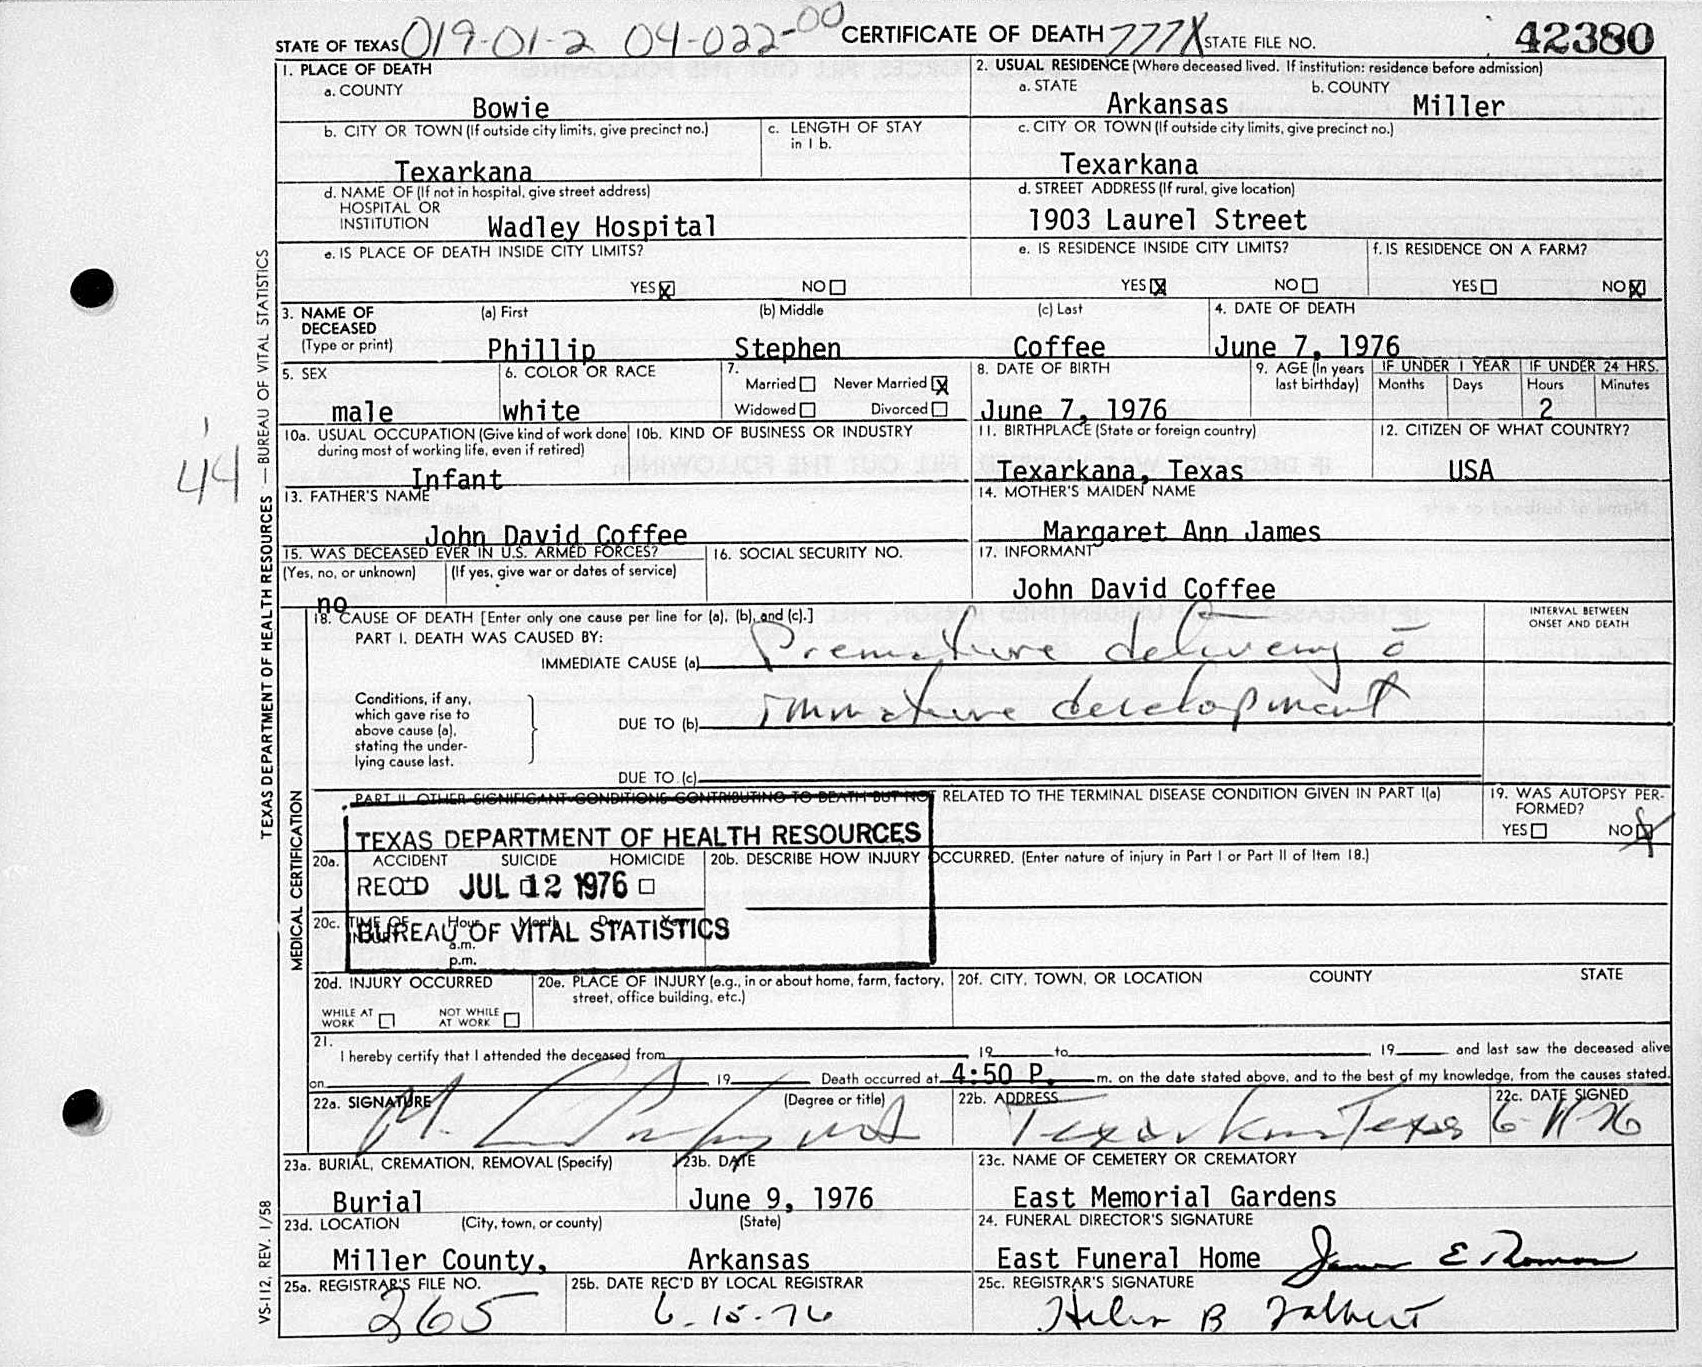 STATE OF TEXAS 019-01-2 04-022-00 CERTIFICATE OF DEATH 777X STATE FILE NO. 42380
1. PLACE OF DEATH
a. COUNTY
Bowie
2. USUAL RESIDENCE (Where deceased lived. If institution: residence before admission)
a. STATE b. COUNTY
Arkansas Miller
b. CITY OR TOWN (If outside city limits, give precinct no.)
Texarkana
c. LENGTH OF STAY
in 1 b.
c. CITY OR TOWN (If outside city limits, give precinct no.)
Texarkana
d. NAME OF (If not in hospital, give street address)
HOSPITAL OR
INSTITUTION Wadley Hospital
d. STREET ADDRESS (If rural, give location)
1903 Laurel Street
e. IS PLACE OF DEATH INSIDE CITY LIMITS?
YES X NO
e. IS RESIDENCE INSIDE CITY LIMITS?
YES X NO
f. IS RESIDENCE ON A FARM?
YES NO X
3. NAME OF
DECEASED
(Type or print)
(a) First (b) Middle (c) Last
Phillip Stephen Coffee
4. DATE OF DEATH
June 7, 1976
5. SEX
male
6. COLOR OR RACE
white
7.
Married Never Married X
Widowed Divorced
8. DATE OF BIRTH
June 7, 1976
9. AGE (In years
last birthday)
IF UNDER 1 YEAR
Months Days
IF UNDER 24 HRS.
Hours Minutes
2
10a. USUAL OCCUPATION (Give kind of work done
during most of working life, even if retired)
Infant
10b. KIND OF BUSINESS OR INDUSTRY
11. BIRTHPLACE (State or foreign country)
Texarkana, Texas
12. CITIZEN OF WHAT COUNTRY?
USA
13. FATHER'S NAME
John David Coffee
14. MOTHER'S MAIDEN NAME
Margaret Ann James
15. WAS DECEASED EVER IN U.S. ARMED FORCES?
(Yes, no, or unknown) (If yes, give war or dates of service)
no
16. SOCIAL SECURITY NO.
17. INFORMANT
John David Coffee
18. CAUSE OF DEATH [Enter only one cause per line for (a), (b), and (c).]
PART I. DEATH WAS CAUSED BY:
IMMEDIATE CAUSE (a) Premature delivery c̄
INTERVAL BETWEEN
ONSET AND DEATH
Conditions, if any,
which gave rise to
above cause (a),
stating the under-
lying cause last.
DUE TO (b) immature development
DUE TO (c)
PART II. OTHER SIGNIFICANT CONDITIONS CONTRIBUTING TO DEATH BUT NOT RELATED TO THE TERMINAL DISEASE CONDITION GIVEN IN PART I(a)
19. WAS AUTOPSY PER-
FORMED?
YES NO X
TEXAS DEPARTMENT OF HEALTH RESOURCES
REC'D JUL 12 1976
BUREAU OF VITAL STATISTICS
20a. ACCIDENT SUICIDE HOMICIDE
20b. DESCRIBE HOW INJURY OCCURRED. (Enter nature of injury in Part I or Part II of Item 18.)
20c. TIME OF Hour Month Day Year
INJURY
a.m.
p.m.
20d. INJURY OCCURRED
WHILE AT
WORK
NOT WHILE
AT WORK
20e. PLACE OF INJURY (e.g., in or about home, farm, factory,
street, office building, etc.)
20f. CITY, TOWN, OR LOCATION COUNTY STATE
21.
I hereby certify that I attended the deceased from 19 to 19 and last saw the deceased alive
on 19 Death occurred at 4:50 P. m. on the date stated above, and to the best of my knowledge, from the causes stated.
22a. SIGNATURE (Degree or title)
22b. ADDRESS
Texarkana Texas
22c. DATE SIGNED
6-11-76
23a. BURIAL, CREMATION, REMOVAL (Specify)
Burial
23b. DATE
June 9, 1976
23c. NAME OF CEMETERY OR CREMATORY
East Memorial Gardens
23d. LOCATION (City, town, or county) (State)
Miller County, Arkansas
24. FUNERAL DIRECTOR'S SIGNATURE
East Funeral Home James E Thomas
25a. REGISTRAR'S FILE NO.
265
25b. DATE REC'D BY LOCAL REGISTRAR
6-15-76
25c. REGISTRAR'S SIGNATURE
Helen B Talbert
TEXAS DEPARTMENT OF HEALTH RESOURCES —BUREAU OF VITAL STATISTICS
MEDICAL CERTIFICATION
VS-112, REV. 1/58
1
44